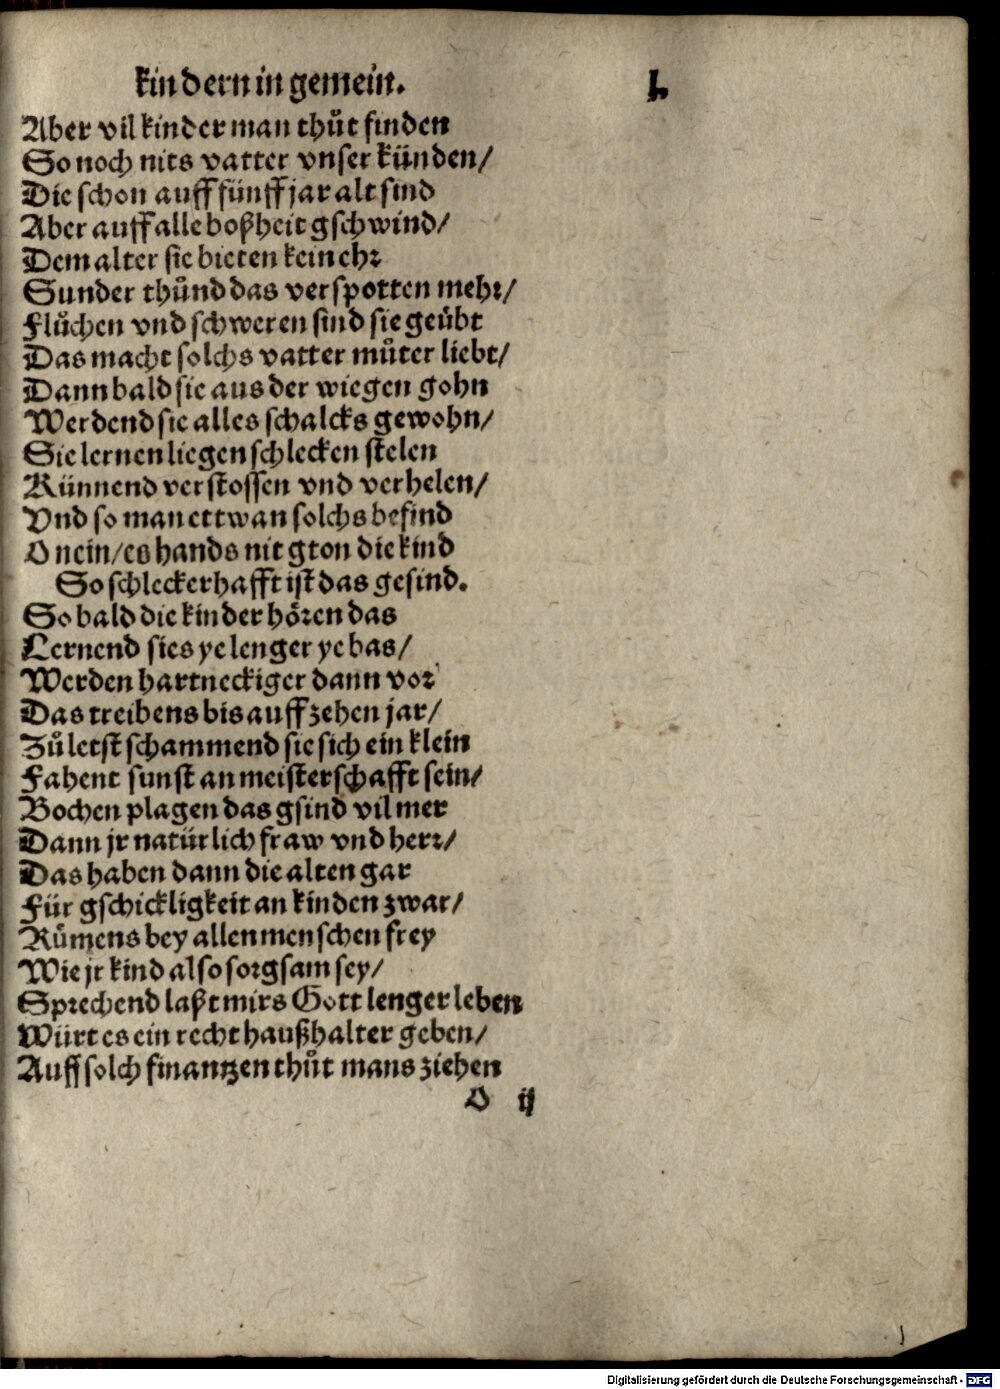 kindern in gemein. L
Aber vil kinder man thuͦt finden
So noch nits vatter vnser künden/
Die schon auff fünff jar alt sind
Aber auff alle boßheit gschwind/
Dem alter sie bieten kein ehꝛ
Sunder thuͦnd das verspotten mehꝛ/
Fluͦchen vnd schweren sind sie geuͤbt
Das macht solchs vatter muͦter liebt/
Dann bald sie aus der wiegen gohn
Werdend sie alles schalcks gewohn/
Sie lernen liegen schlecken stelen
Künnend verstossen vnd verhelen/
Vnd so man ettwan solchs befind
O nein/es hands nit gton die kind
So schleckerhafft ist das gesind.
So bald die kinder hoͤꝛen das
Lernend sies ye lenger ye bas/
Werden hartneckiger dann voꝛ
Das treibens bis auff zehen jar/
Zuͦ letst schammend sie sich ein klein
Fahent sunst an meisterschafft sein/
Bochen plagen das gsind vil mer
Dann jr natürlich fraw vnd herꝛ/
Das haben dann die alten gar
Für gschickligkeit an kinden zwar/
Ruͤmens bey allen menschen frey
Wie jr kind also soꝛgsam sey/
Spꝛechend laßt mirs Gott lenger leben
Würt es ein recht haußhalter geben/
Auff solch finantzen thuͦt mans ziehen
O ij
Digitalisierung gefördert durch die Deutsche Forschungsgemeinschaft - DFG